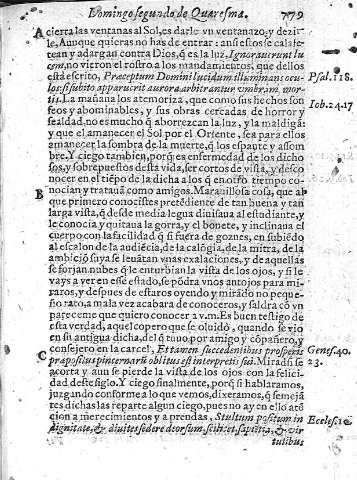 Domingo segundo de Quaresma. 779
A cierra las ventanas al Sol, es darle vn ventanazo, y dezir
le, Aunque quieras no has de entrar: ansi estos se calafe-
tean y adargan contra Dios, q̃ es la luz. Ignorauerunt lu
cem, no vieron el rostro a los mandamientos, que dellos
está escrito, Præceptum Domini lucidum illuminans ocu- Psal. 118.
los: si subito apparuerit aurora arbitrantur vmbram mor-
tis. La mañana los atemoriza, que como sus hechos son Iob. 24.17
feos y abominables, y sus obras cercadas de horror y
fealdad, no es mucho q̃ aborrezcan la luz, y la maldigã:
y que el amanecer el Sol por el Oriente, sea para ellos
amanecer la sombra de la muerte, q̃ los espante y assom
bre. Y ciego tambien, porq̃ es enfermedad de los dicho
sos, y sobrepuestos desta vida, ser cortos de vista, y desco
nocer en el tiẽpo de la dicha a los q̃ en otro tiempo co-
B nocian y tratauã como amigos. Marauillosa cosa, que al
que primero conocistes pretẽdiente de tan buena y tan
larga vista, q̃ desde media legua diuisaua al estudiante, y
le conocia y quitaua la gorra, y el bonete, y inclinaua el
cuerpo con la facilidad q̃ si fuera de goznes, en subiẽdo
al escalon de la audiẽcia, de la calõgia, de la mitra, de la
ambiciõ suya se leuãtan vnas exalaciones, y de aquellas
se forjan nubes q̃ le enturbian la vista de los ojos, y si le
vays a ver en esse estado, se põdra vnos antojos para mi
raros, y despues de estaros oyendo y mirãdo no peque-
ño rato, a mala vez acabara de conoceros, y saldra cõ vn
pareceme que quiero conocer a v.m. Es buen testigo de
esta verdad, aquel copero que se oluidó, quando se vio
en su antigua dicha, del q̃ tuuo por amigo y cõpañero, y
C consejero en la carcel, Et tamen succedentibus prosperis Genes. 40.
præpositus pincernarũ oblitus est interpretis sui. Mirad si se 23.
acorta y aun se pierde la vista de los ojos con la felici-
dad deste siglo. Y ciego finalmente, porq̃ si hablaramos,
juzgando conforme a lo que vemos, dixeramos, q̃ semejã
tes dichas las reparte algun ciego, pues no ay en ello atẽ
cion a merecimientos y a prendas, Stultum positum in Eccles. 10
dignitate, & diuites sedere deorsum, scilicet, sapiẽtia, & vir
tutibus